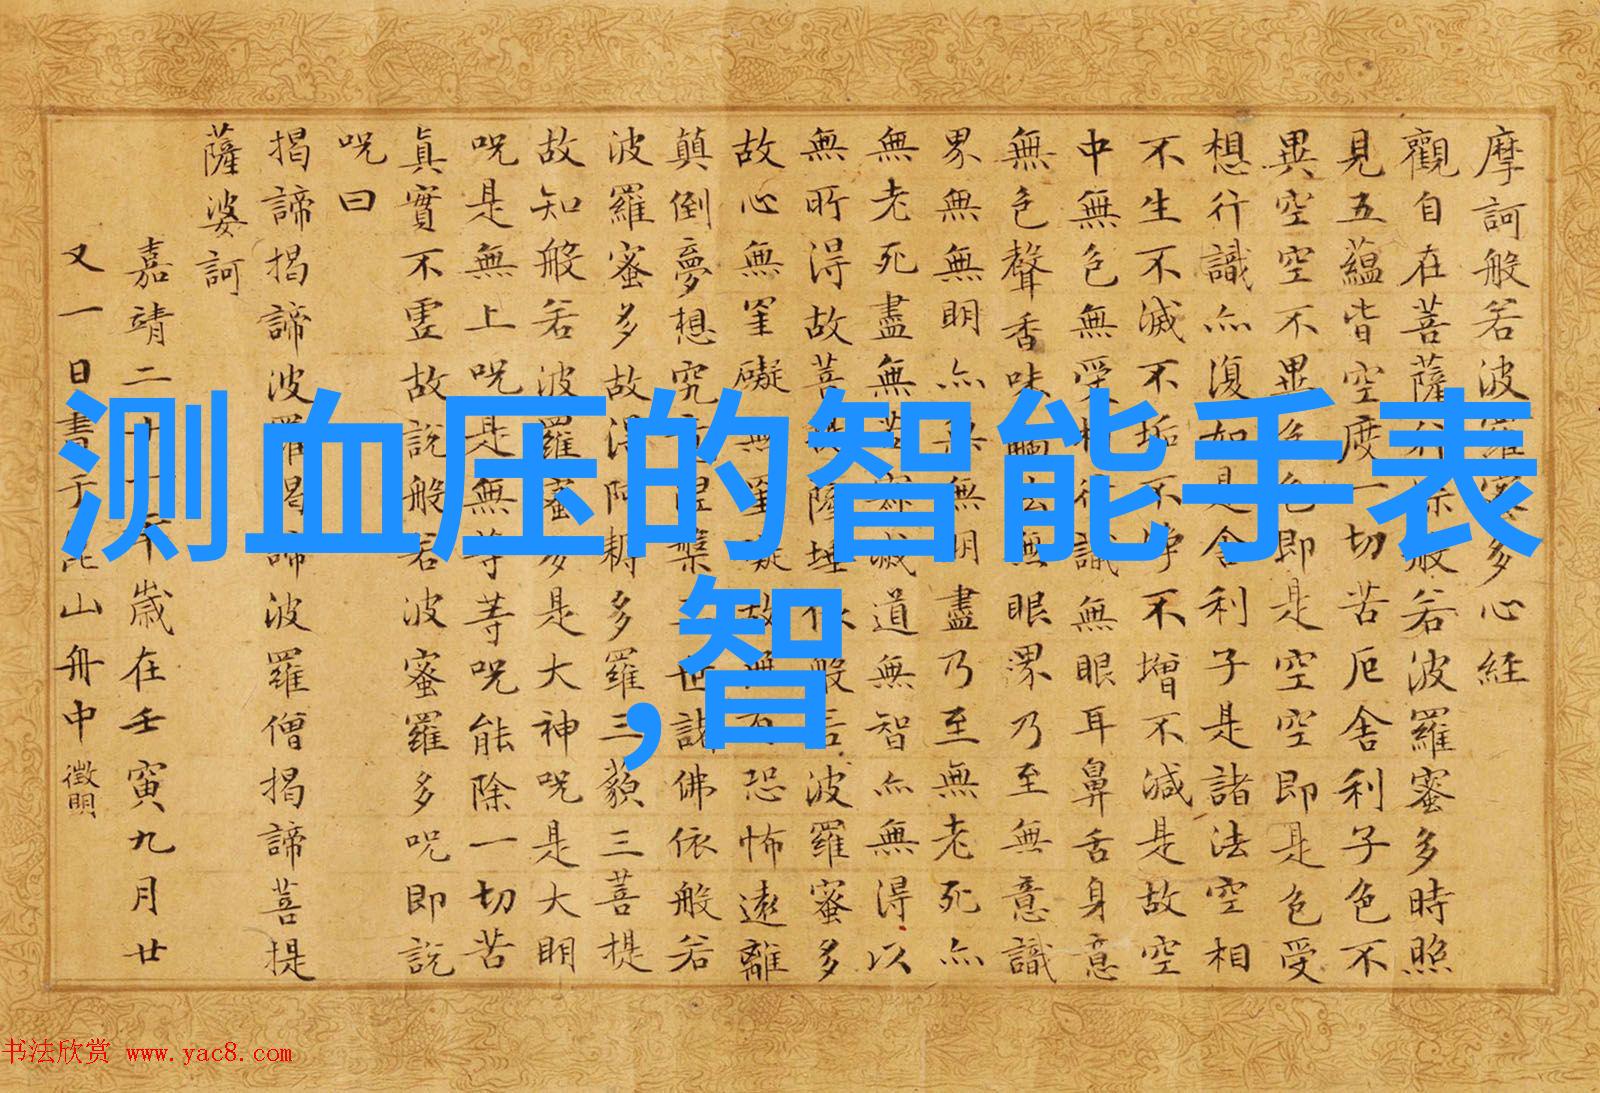 测血压的智能手表
,智
摩訶般若波羅蜜多心経
觀自在菩薩行深般若波羅蜜多時照
見五蘊皆空度一切苦厄舍利子色不
異空空不異色色即是空空即是色受
想行識亦復如是舍利子是諸法空相
不生不滅不垢不净不增不減是故空
中無色無受想行識無眼耳鼻舌身意
無色聲香味觸法無眼界乃至無意識
界無無明亦無無明盡乃至無老死亦
無老死盡無苦集滅道無智亦無得以
無所得故菩提薩埵依般若波羅蜜多
故心無罣礙無罣礙故無有恐怖遠離
顛倒夢想究竟涅槃三世諸佛依般若
波羅蜜多故得阿耨多羅三藐三菩提
故知般若波羅蜜多是大神呪是大明
呪是無上呪是無等等呪能除一切苦
真實不虛故說般若波羅蜜多呪即說
呪曰
揭諦揭諦波羅揭諦波羅僧揭諦菩提
薩婆訶
嘉靖二十一年歲在壬寅九月廿
又一日書于崑山舟中 徵明
书法欣赏 www.yac8.com